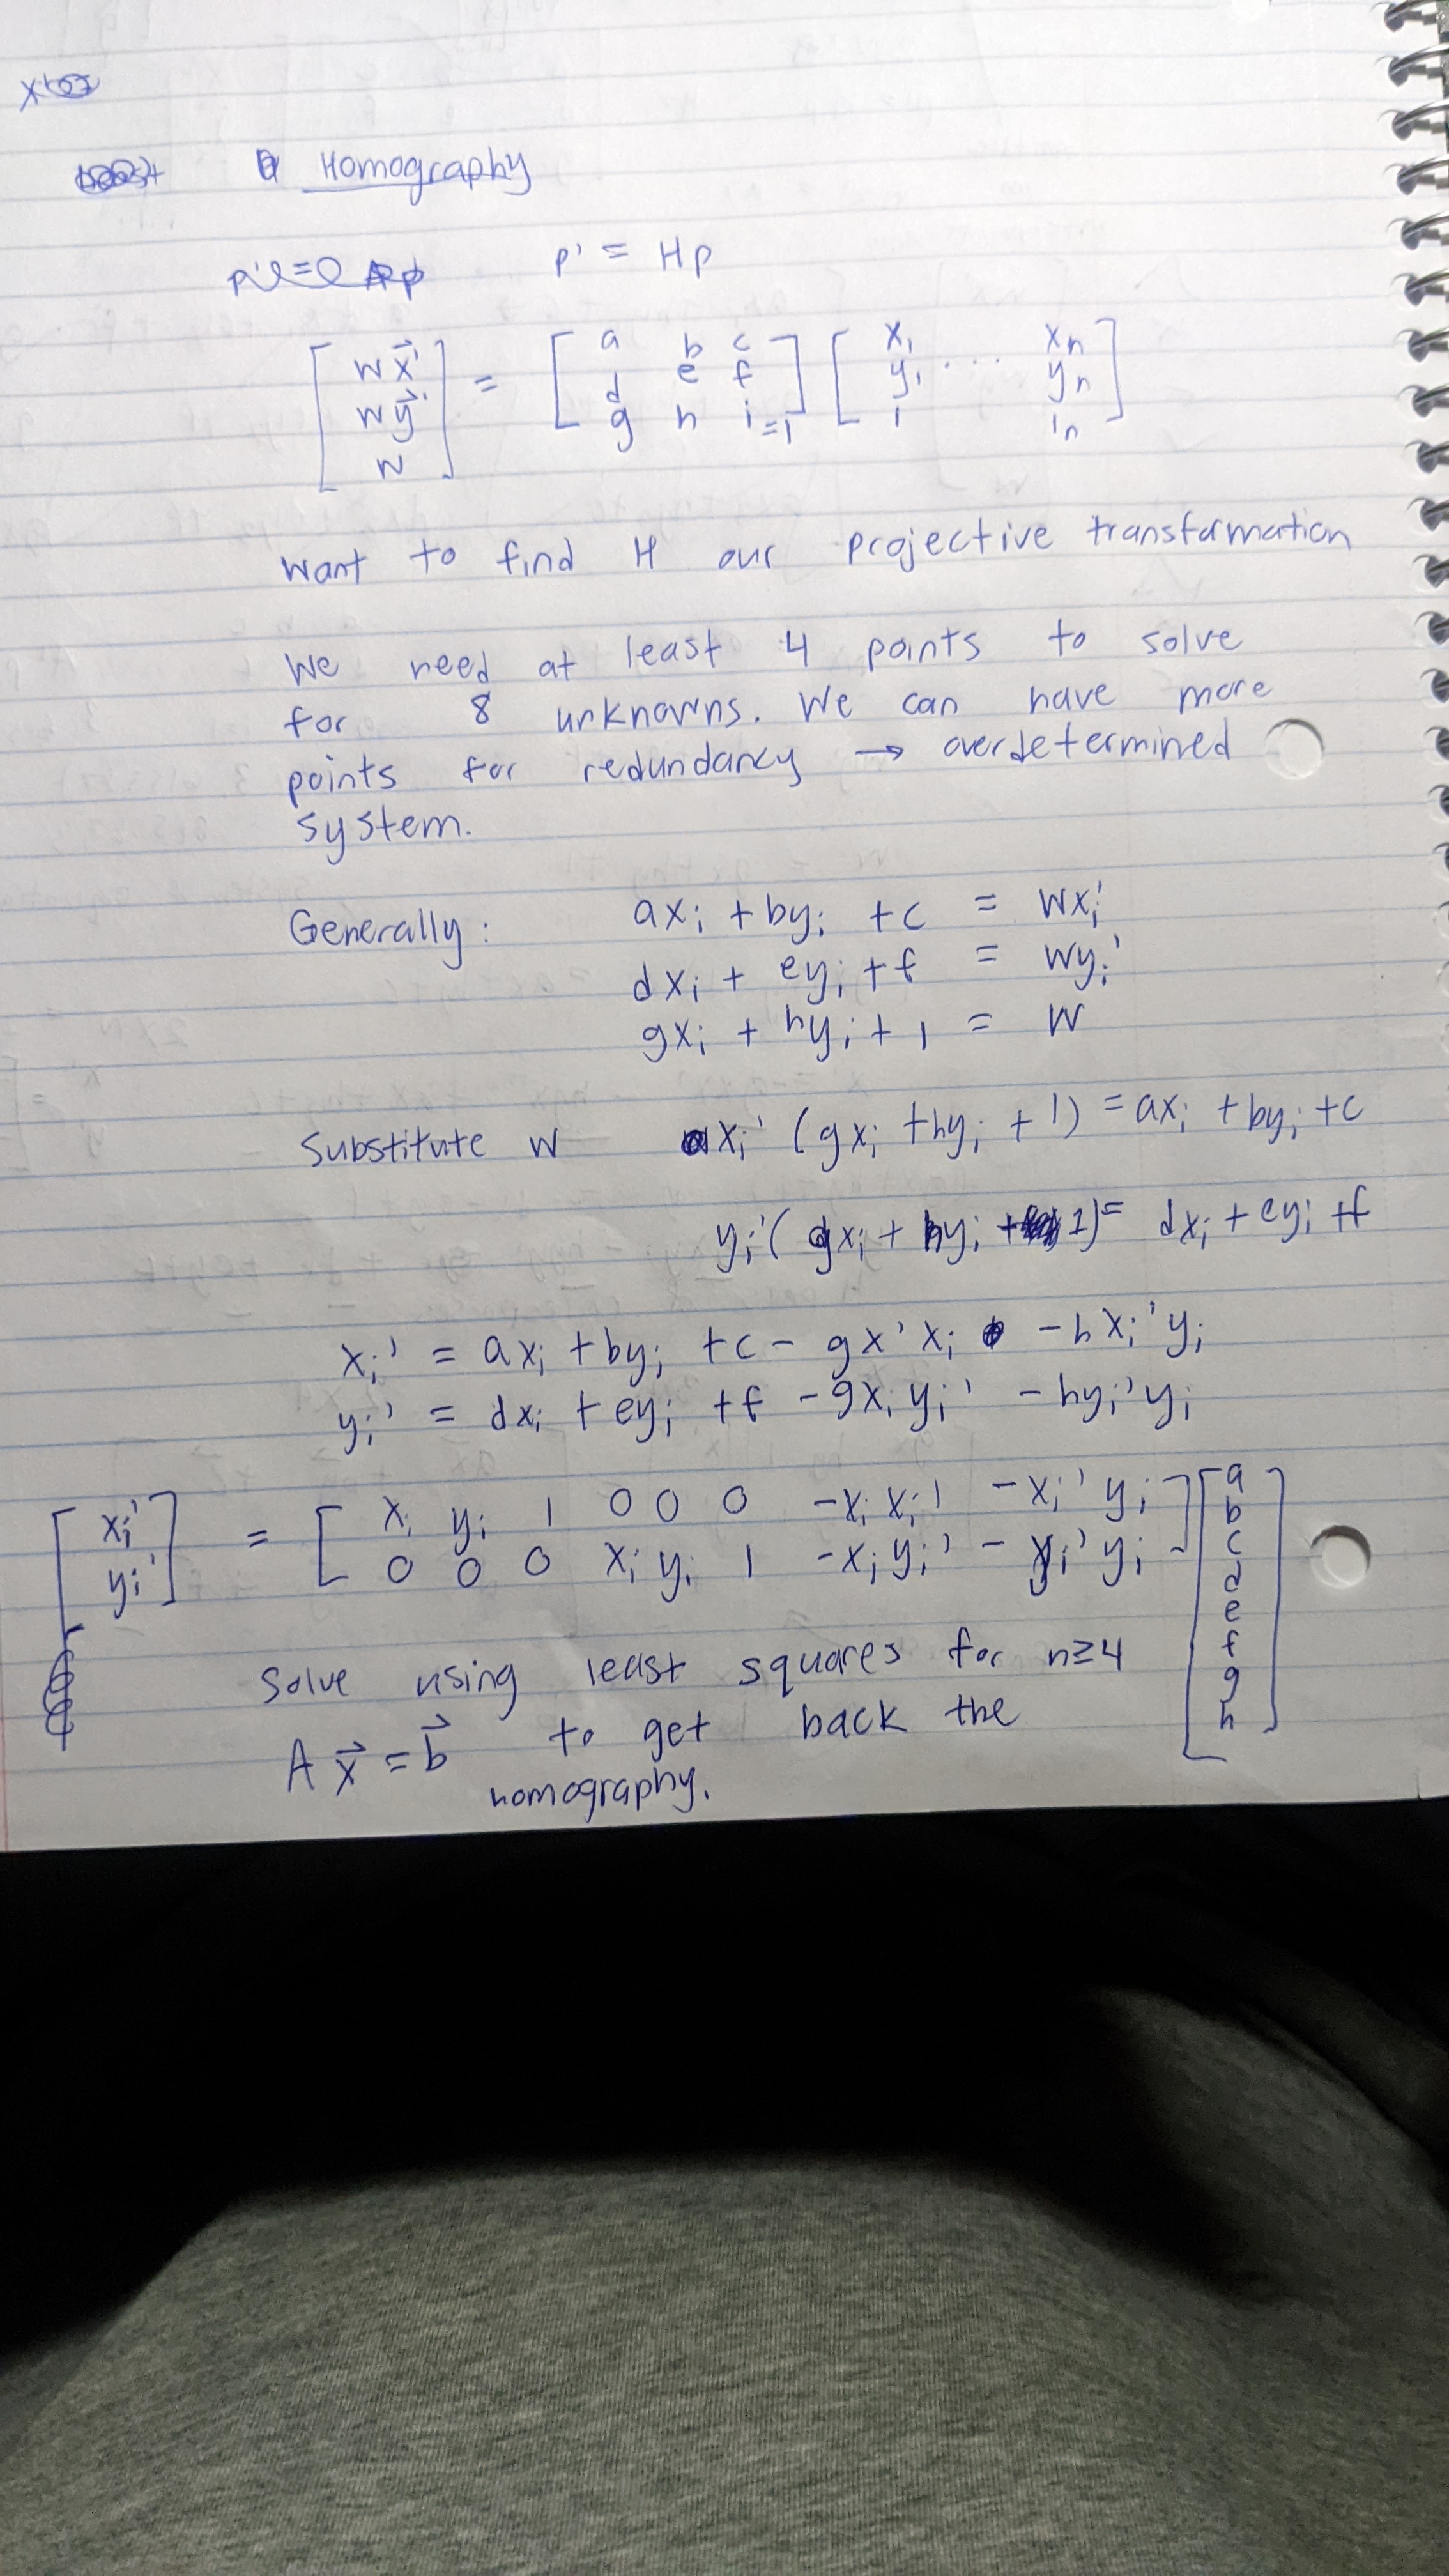 Homography
p' = Hp
[ wx⃗' wy⃗' w ] = [ a b c d e f g h i=1 ] [ x₁ y₁ 1 ... xₙ yₙ 1ₙ ]
want to find H our projective transformation
We need at least 4 points to solve
for 8 unknowns. We can have more
points for redundancy → overdetermined
system.
Generally: axᵢ + byᵢ + c = wxᵢ'
dxᵢ + eyᵢ + f = wyᵢ'
gxᵢ + hyᵢ + 1 = w
Substitute w xᵢ' (gxᵢ + hyᵢ + 1) = axᵢ + byᵢ + c
yᵢ' (gxᵢ + hyᵢ + 1) = dxᵢ + eyᵢ + f
xᵢ' = axᵢ + byᵢ + c - gx'xᵢ - hxᵢ'yᵢ
yᵢ' = dxᵢ + eyᵢ + f - gxᵢyᵢ' - hyᵢ'yᵢ
[ xᵢ' yᵢ' ] = [ xᵢ yᵢ 1 0 0 0 -xᵢxᵢ' -xᵢ'yᵢ 0 0 0 xᵢ yᵢ 1 -xᵢyᵢ' -yᵢ'yᵢ ] [ a b c d e f g h ]
Solve using least squares for n≥4
Ax⃗ = b⃗ to get back the
homography.